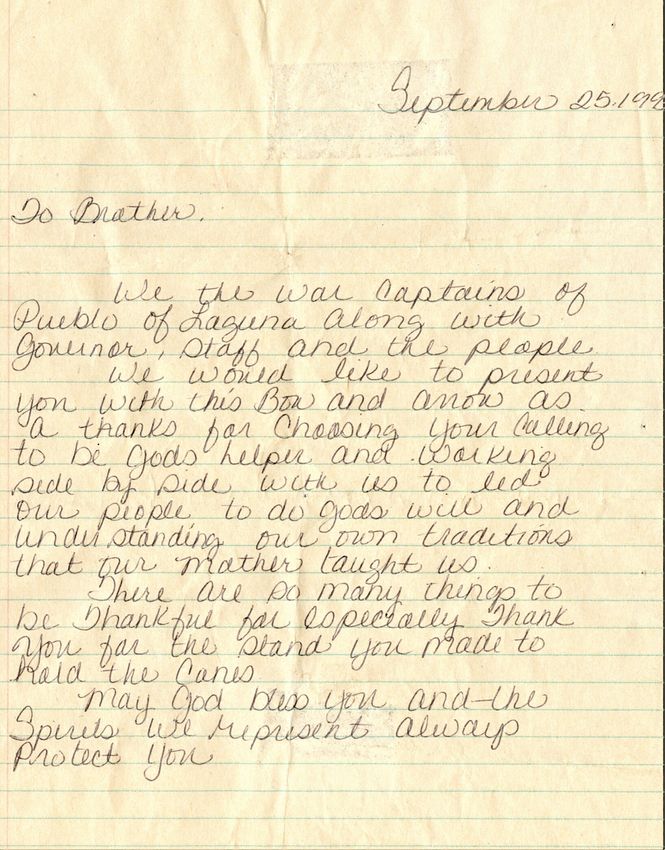 September 25, 199
To Brother.
We the war Captains of
Pueblo of Laguna Along with
Governor, Staff and the people
We would like to present
you with this Bow and arrow as
a thanks for Choosing your Calling
to be Gods helper and working
side by side with us to led
our people to do gods will and
understanding our own traditions
that our mother taught us.
There are so many things to
be Thankful for especially Thank
You for the stand you made to
hold the Canes
May God bless you and the
Spirits we represent always
Protect You